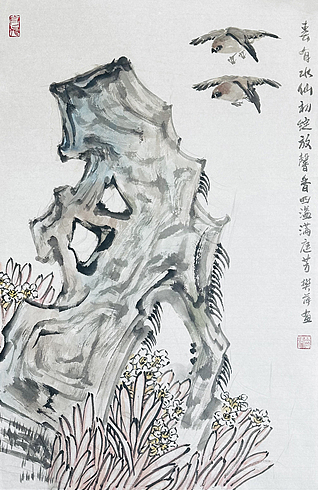 春有水仙初绽放馨香四溢满庭芳 樊萍画